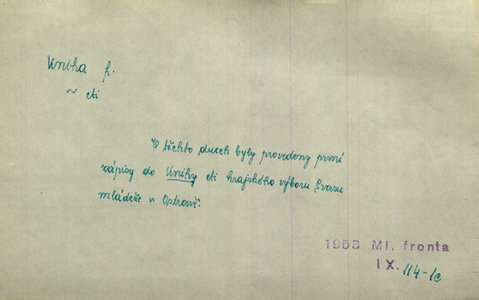 Kniha f.
~ cti
V těchto dnech byly provedeny první
zápisy do Knihy cti krajského výboru Svazu
mládeže v Ostravě.
1953 Ml. fronta
IX. 114-1c